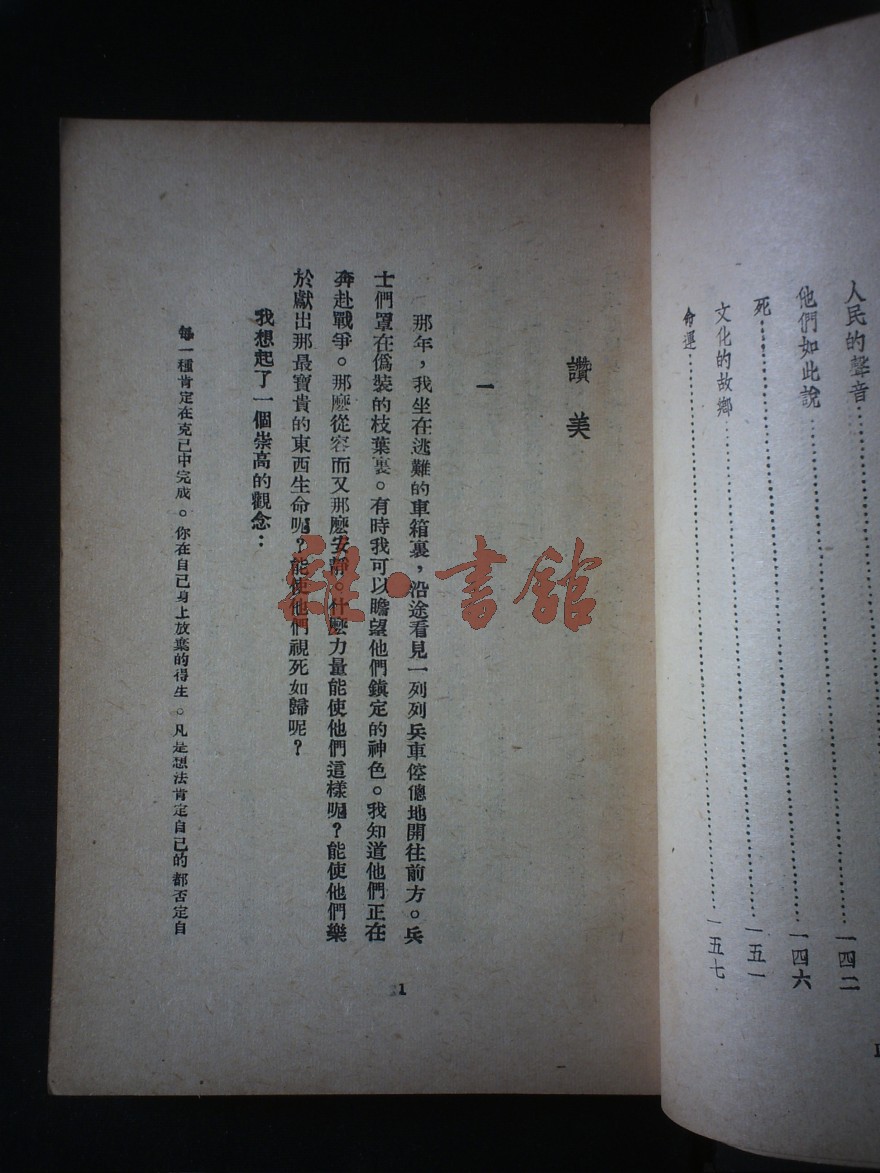 人民的聲音……一四二
他們如此說……一四六
死……一五一
文化的故鄉……一五七
命運……
讚美
一
那年，我坐在逃難的車箱裏，沿途看見一列列兵車倥傯地開往前方。兵
士們罩在偽裝的枝葉裏。有時我可以瞻望他們鎮定的神色。我知道他們正在
奔赴戰爭。那麼從容而又那麼安靜。什麼力量能使他們這樣呢？能使他們樂
於獻出那最寶貴的東西生命呢？能使他們視死如歸呢？
我想起了一個崇高的觀念：
每一種肯定在克己中完成。你在自己身上放棄的得生。凡是想法肯定自己的都否定自
1
雜·書館